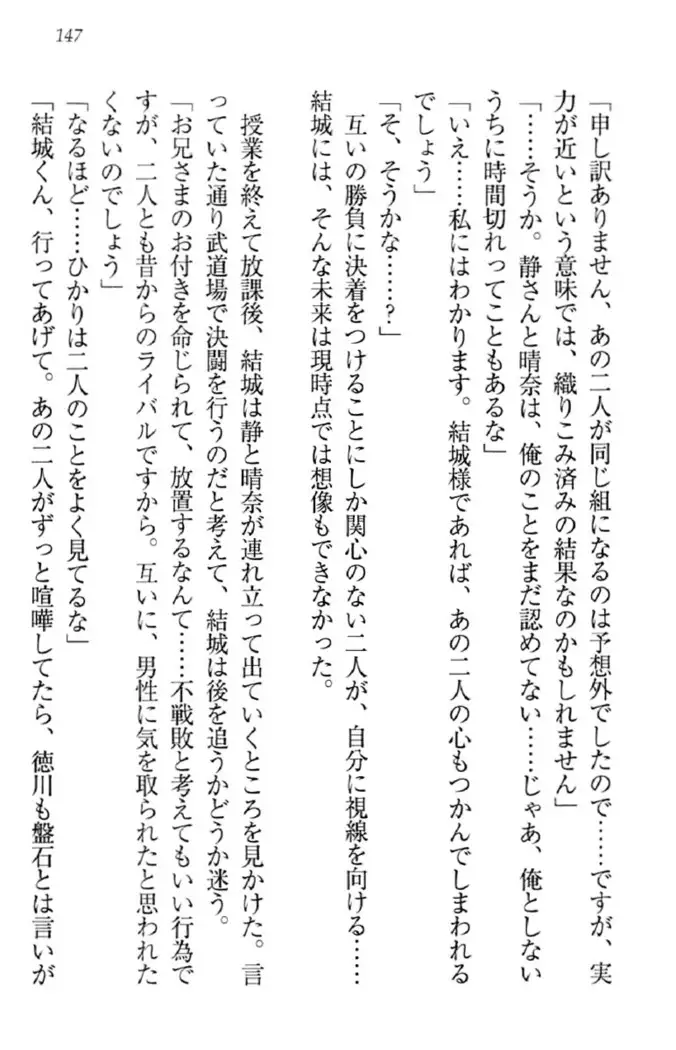 147
「申し訳ありません、あの二人が同じ組になるのは予想外でしたので……ですが、実
力が近いという意味では、織りこみ済みの結果なのかもしれません」
「……そうか。静さんと晴奈は、俺のことをまだ認めてない……じゃあ、俺としない
うちに時間切れってこともあるな」
「いえ……私にはわかります。結城様であれば、あの二人の心もつかんでしまわれる
でしょう」
「そ、そうかな……？」
互いの勝負に決着をつけることにしか関心のない二人が、自分に視線を向ける……
結城には、そんな未来は現時点では想像もできなかった。
授業を終えて放課後、結城は静と晴奈が連れ立って出ていくところを見かけた。言
っていた通り武道場で決闘を行うのだと考えて、結城は後を追うかどうか迷う。
「お兄さまのお付きを命じられて、放置するなんて……不戦敗と考えてもいい行為で
すが、二人とも昔からのライバルですから。互いに、男性に気を取られたと思われた
くないのでしょう」
「なるほど……ひかりは二人のことをよく見てるな」
「結城くん、行ってあげて。あの二人がずっと喧嘩してたら、徳川も盤石とは言いが